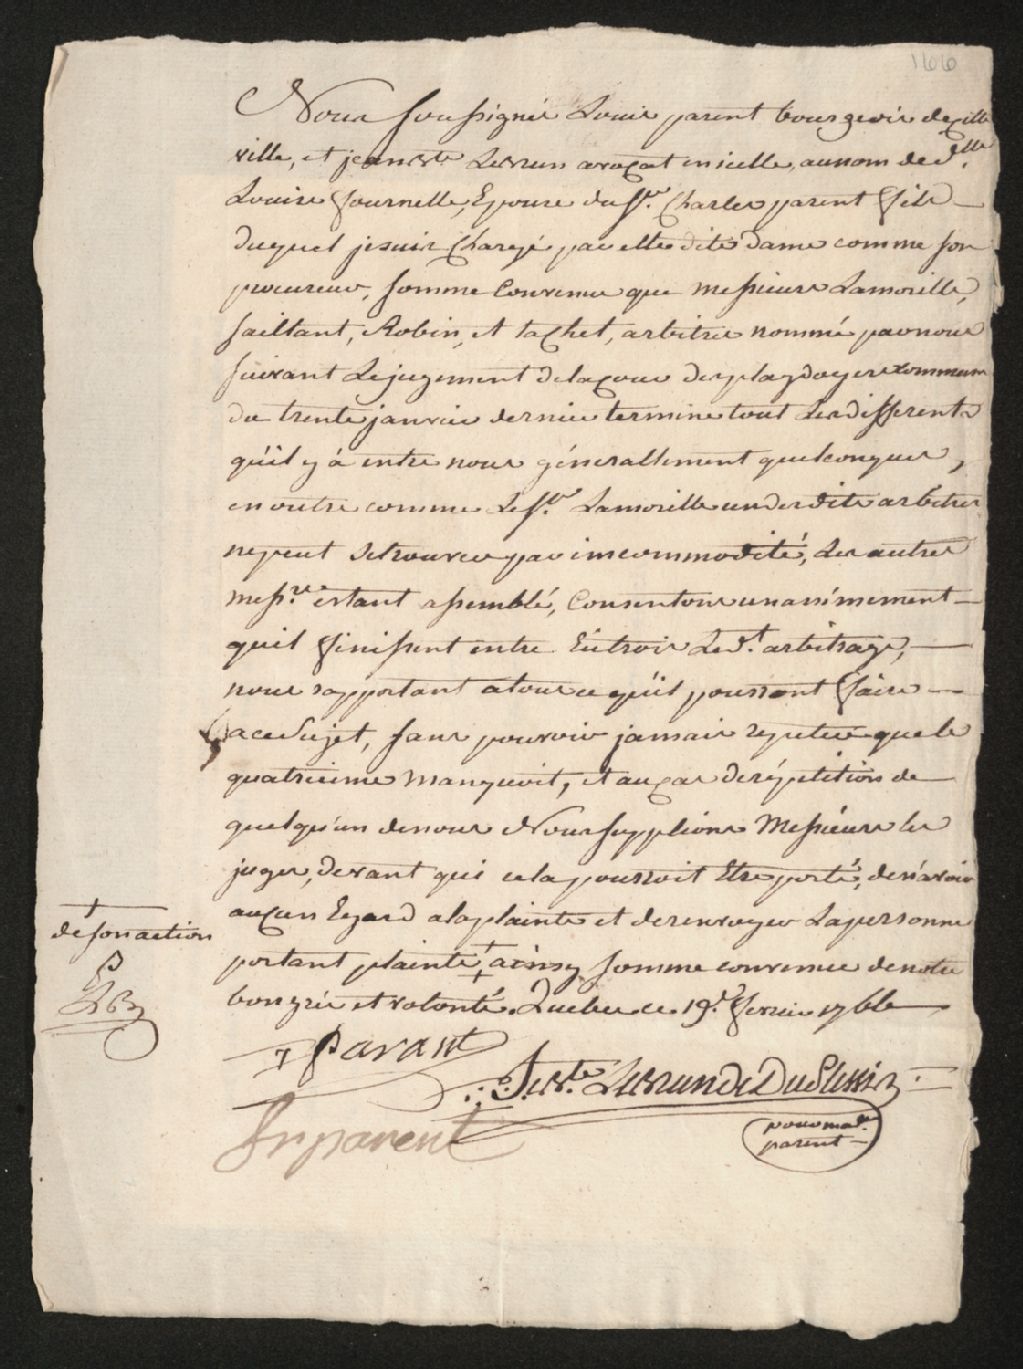 166
Nous soussignés Louis parent bourgeois de cette
ville, et jean Bte Lebrun avocat en icelle, au nom de de. dlle
Louise fournelle, Epouse du Sr. Charles parent fils
duquel je suis Chargé par elle dite dame comme son
procureur, somme Convenus que Messieurs Lamorille,
saillant, Robin, et tachet, arbitre nommé par nous
suivant Le jugement de la cour des playdoyers commum
du trente janvie dernier termine tout Les differents
qu'il y á entre nous génerallement quelconques,
en outre comme Le Sr. Lamorille un des dits arbitres
ne peut se trouver par incommodité, Les autres
messrs. estant assemblé, Consentons unanimement
quil finissent entre Eux trois Le dt. arbitrage,
nous rapportant a tous ce qu'il pourront faire
a ce Sujet, sans pouvoir jamais reputer que le
quatrieime manquoit, et au cas de répétition de
quelqu'un de nous Nous supplions Messieurs les
juges, devant qui cela pourroit Etre porté, de n'avoir
aucun Egard a la plainte et de renvoyer La personne
portant plainte + ainsy somme convenus de notre
bon gré et volonté. Quebec ce 19e. fevrie 1766
+
de son action
P
LB
J Parant
J. Bte. Lebrun de Duplessis
pour made.
parent
fr parent